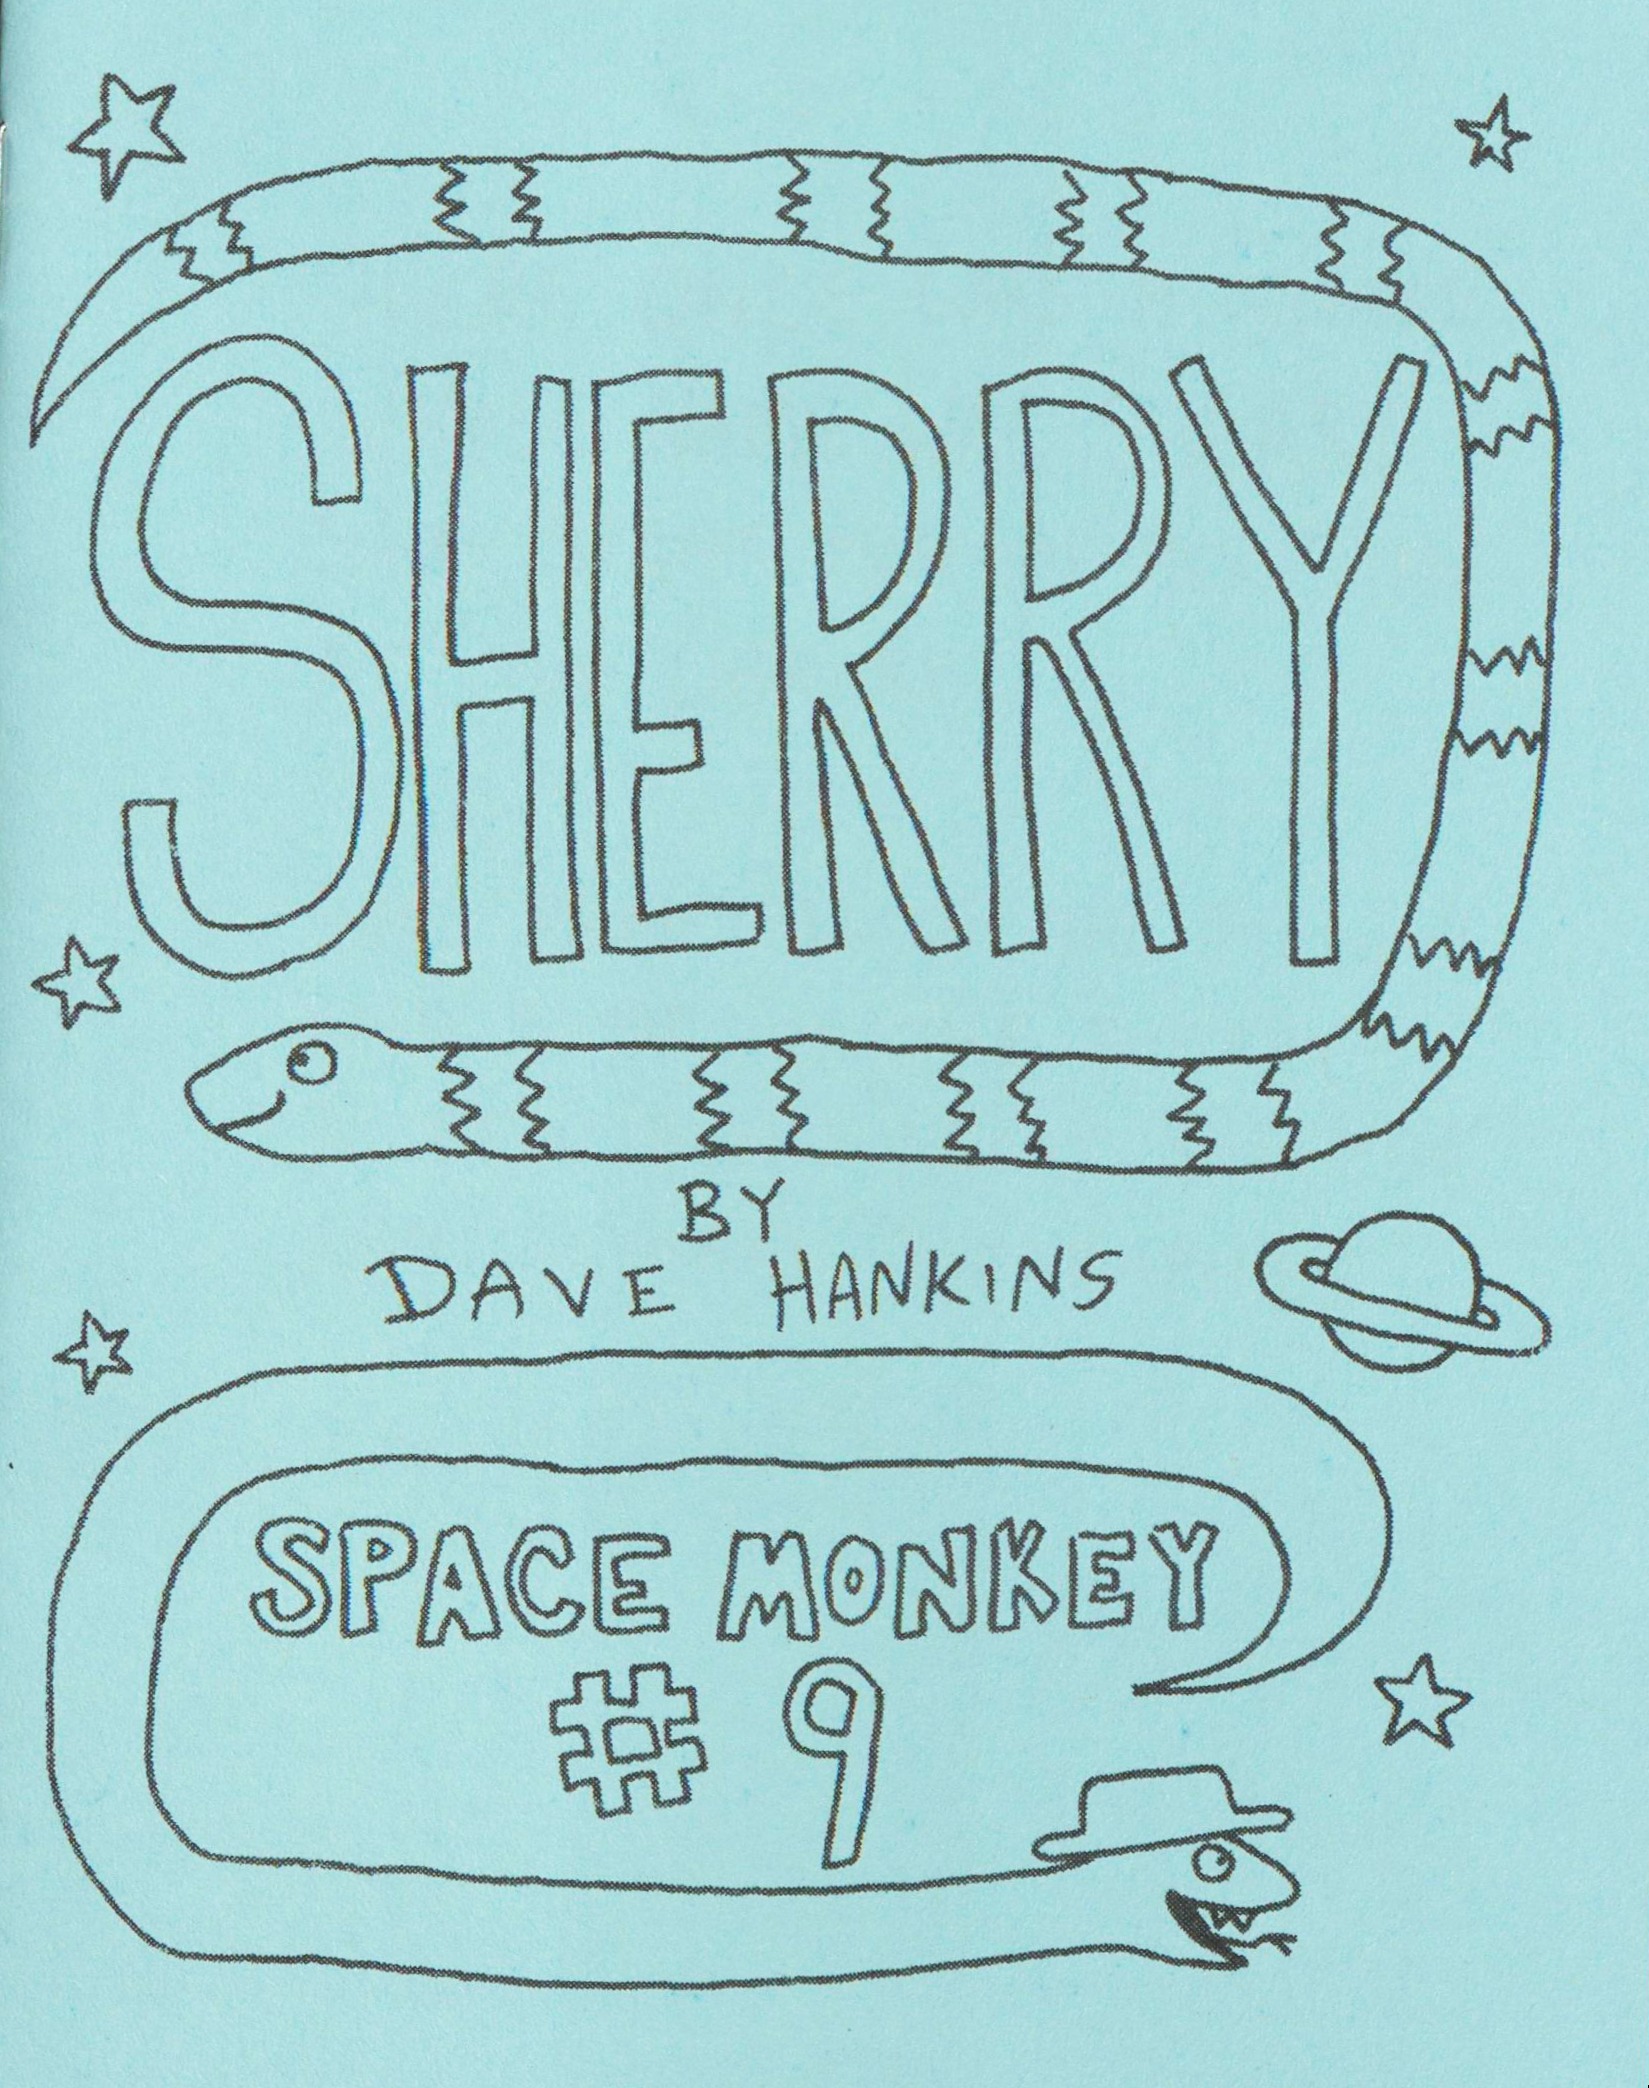 SHERRY
BY
DAVE HANKINS
SPACE MONKEY
# 9